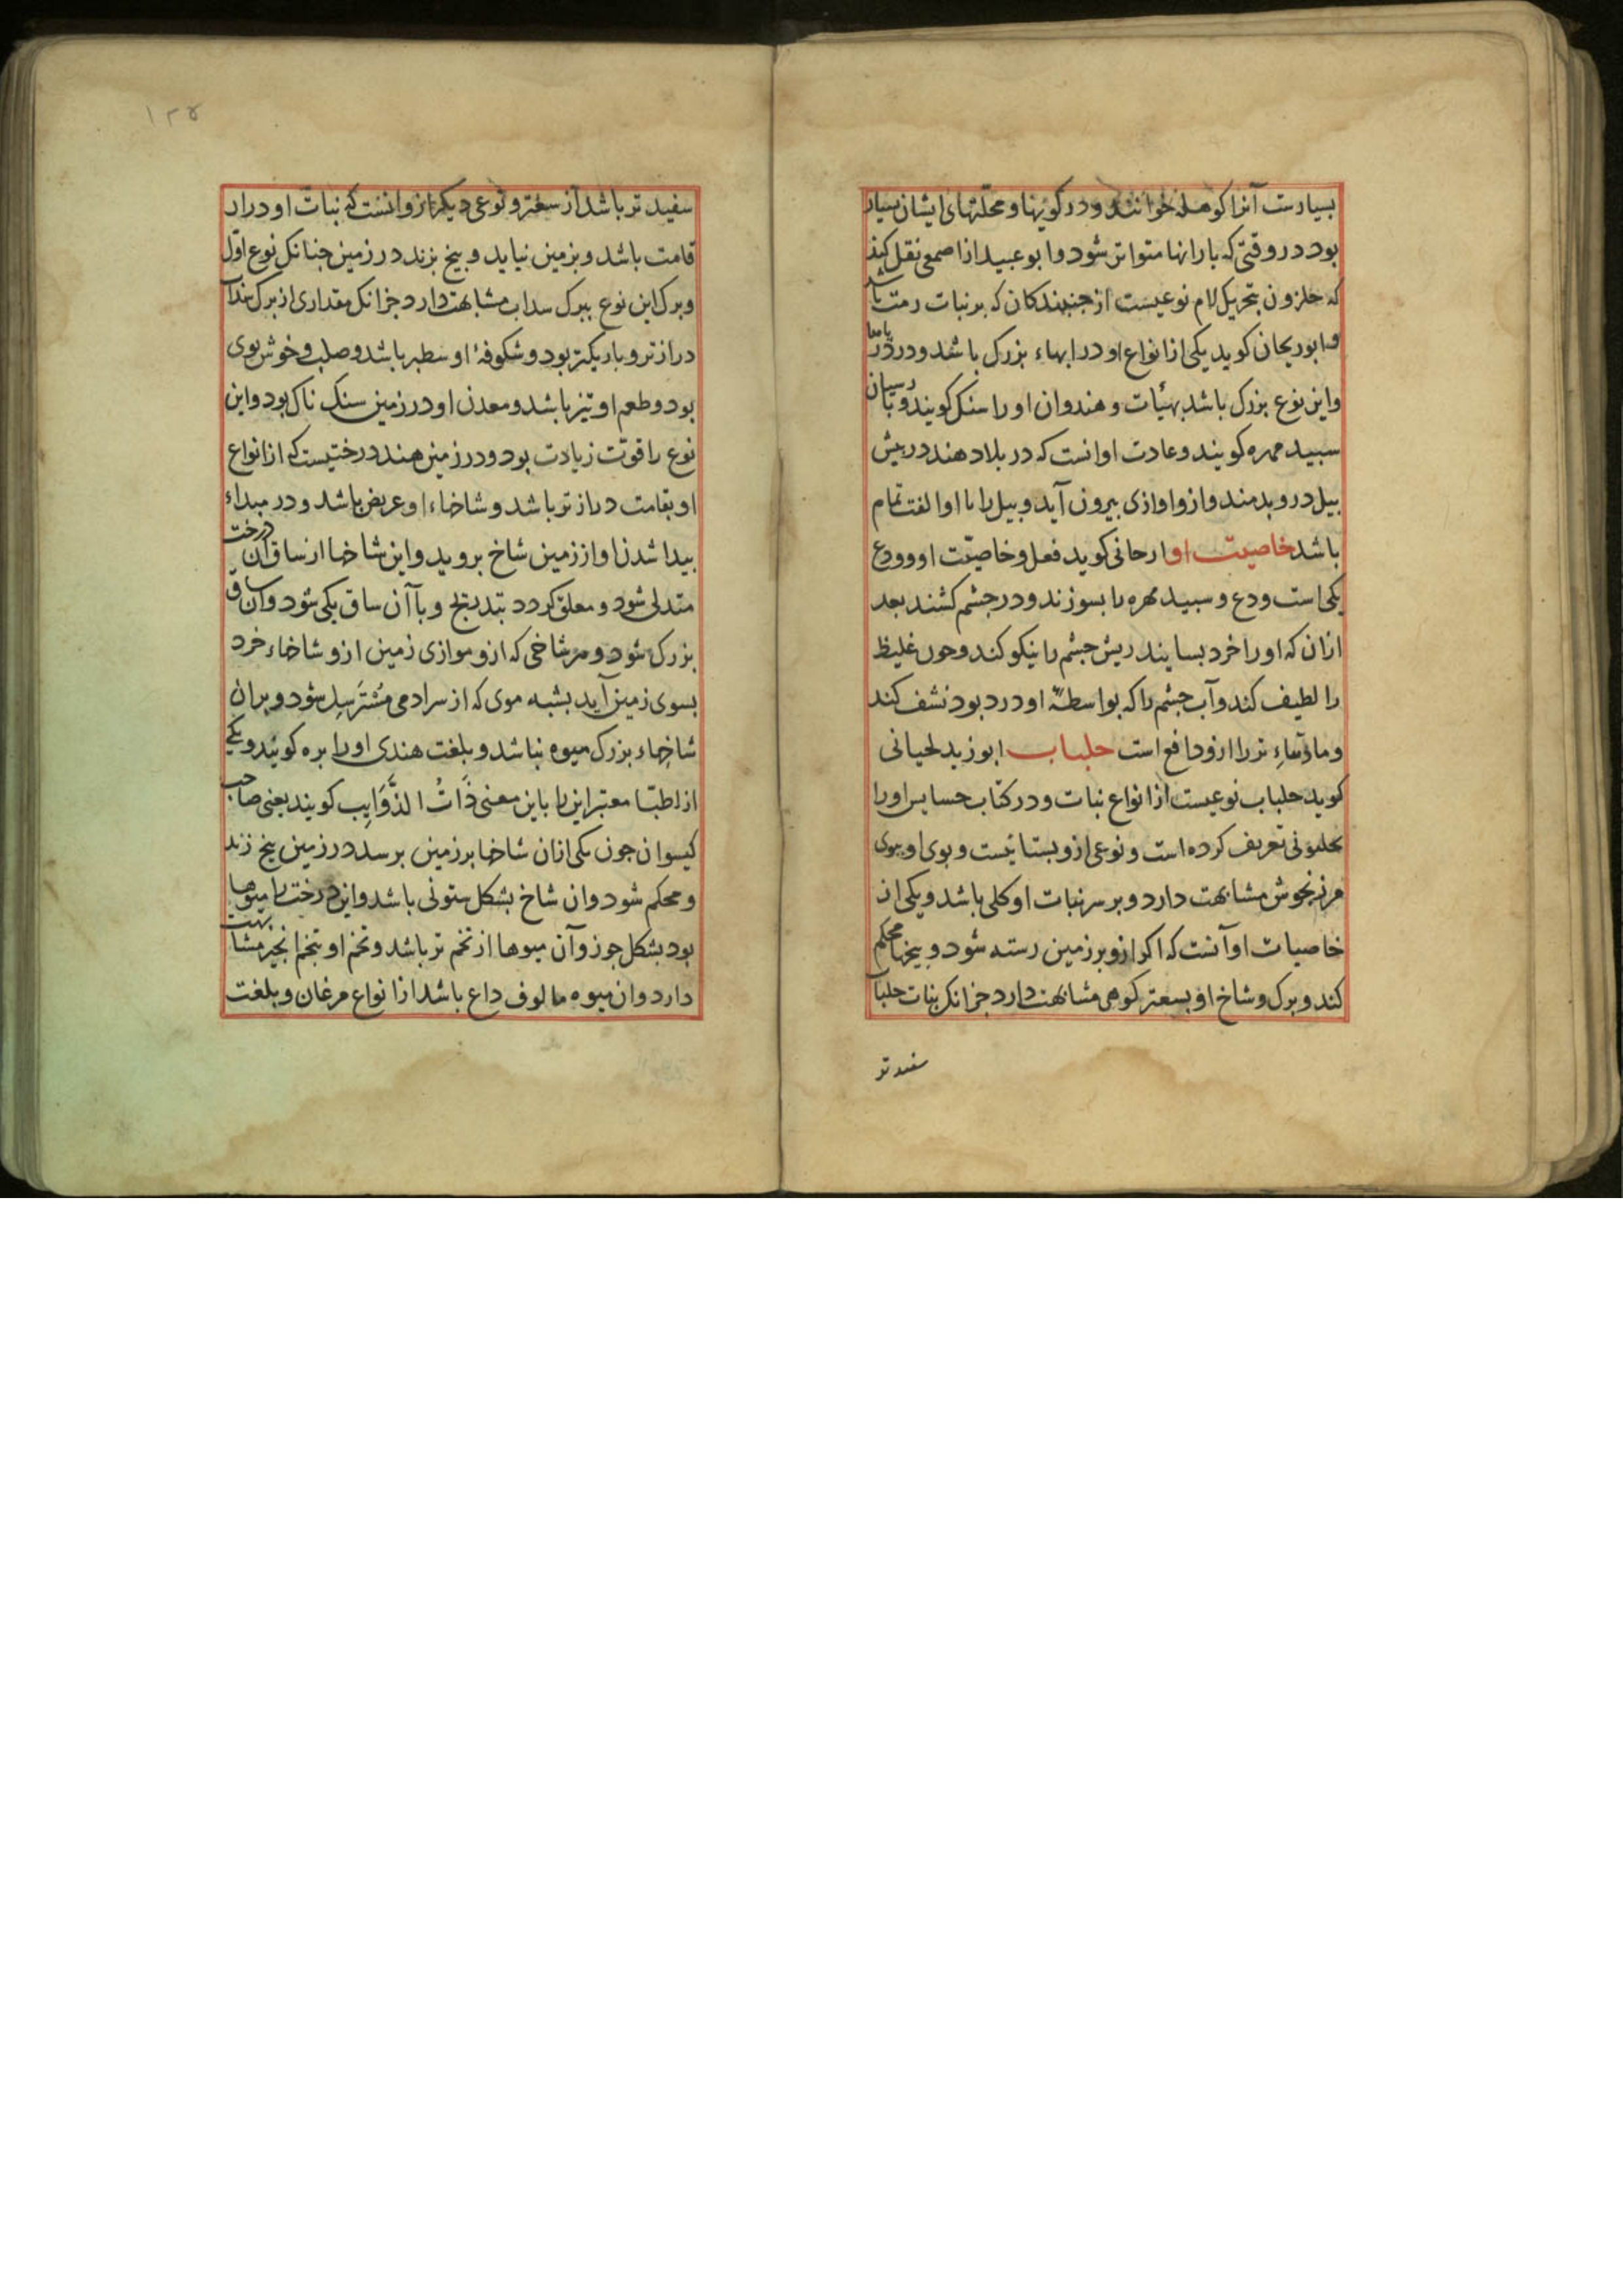 بسیارست آنرا کوهله خوانند و در کویها و محلتهای ایشان بسیار
بود در وقتی که بارانها متواتر شود و ابو عبید از اصمعی نقل کند
که حلزون بتحریک لام نوعیست از جنبندکان که بر نبات رمث باشد
و ابوریحان کوید یکی از انواع او در ابهاء بزرک باشد و در دریاها
و این نوع بزرک باشد بهیأت و هندوان او را سنک کویند و بپارسیان
سبید مهره کویند و عادت او انست که در بلاد هند در پیش
بیل درو بدمند و ازو اوازی بیرون آید و بیل را با او الفت تمام
باشد خاصیت او ارجانی کوید فعل و خاصیت او و ودع
یکی است ودع و سبید مهره را بسوزند و در جشم کشند بعد
ازان که او را خرد بسایند ریش جشم را نیکو کند و خون غلیظ
را لطیف کند و آب جشم را که بواسطهٔ او درد بود نشف کند
و مادتهاء تر را ازو دافع است حلباب ابوزید لحیانی
کوید حلباب نوعیست از انواع نبات و در کتاب حسایس او را
تعریف کرده است و نوعی ازو بستانیست و بوی او ببوی
مرزنجوش مشابهت دارد و بر سر نبات او کلی باشد و یکی از
خاصیات او آنست که اکر ازو بر زمین رسته شود و بیخها محکم
کند و برک و شاخ او بسعتر کوهی مشابهت دارد جز انک نبات حلباب
سفید تر
۱۲۵
سفید تر باشد از سعتر و نوعی دیکر ازو انست که نبات او دراز
قامت باشد و بزمین نیاید و بیخ بزند در زمین جنانک نوع اول
و برک این نوع ببرک سداب مشابهت دارد جز انک مقداری از برک سداب
درازتر و باریکتر بود و شکوفهٔ او سطبر باشد و صلب و خوش بوی
بود و طعم او تیز باشد و معدن او در زمین سنک ناک بود و این
نوع را قوت زیادت بود و در زمین هند درختیست که از انواع
او بقامت دراز تر باشد و شاخاء او عریض باشد و در مبداء
بیدا شدن او از زمین شاخ بروید و این شاخها از ساق آن درخت
متدلی شود و معلق کردد بتدریج و با آن ساق یکی شود و آن ساق
بزرک شود و هر شاخی که ازو موازی زمین ازو شاخاء خرد
بسوی زمین آید بشبه موی که از سر ادمی مسترسل شود و بران
شاخهاء بزرک میوه نباشد و بلغت هندی او را بره کویند و یکی
از اطبا معتبر این را باین معنی ذات الذوایب کویند یعنی صاحب
کیسوان جون یکی ازان شاخها بر زمین برسد در زمین بیخ زند
و محکم شود و ان شاخ بشکل ستونی باشد و این درخت را میوها
بود بشکل جوز و آن میوها از تخم تر باشد و تخم او بتخم انجیر مشابهت
دارد و ان میوه مالوف داع باشد از انواع مرغان و بلغت